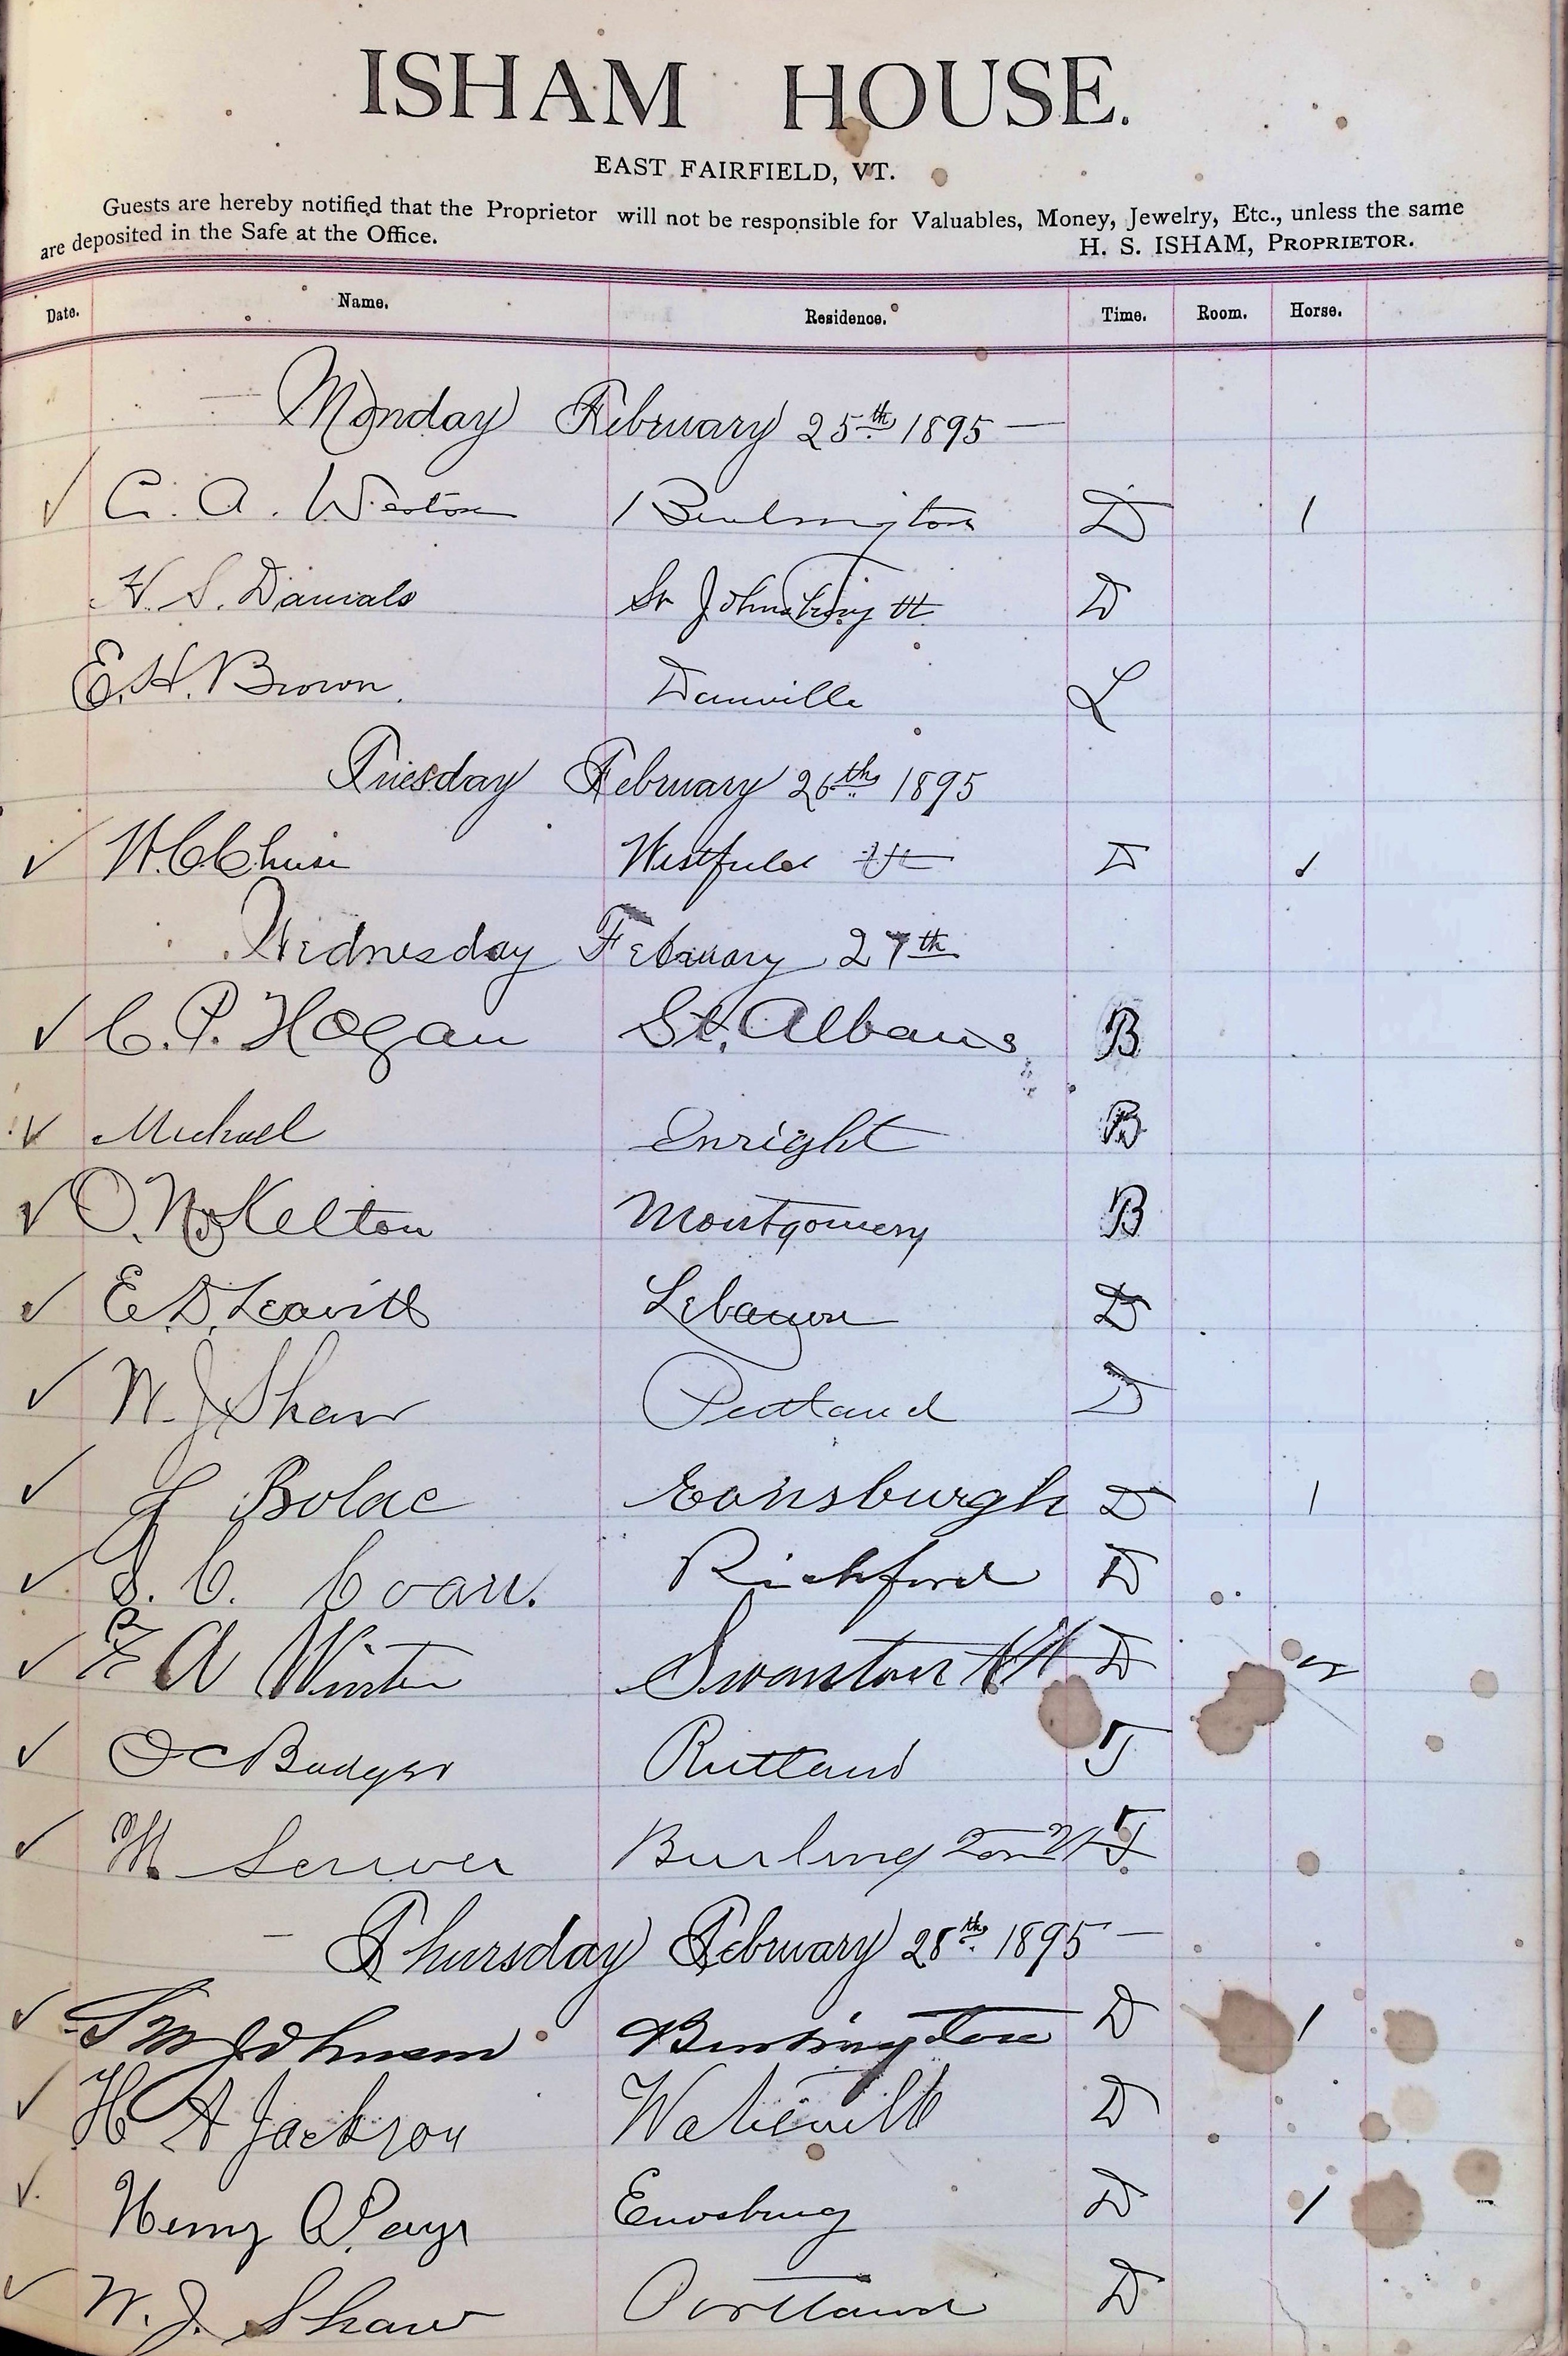 ISHAM HOUSE.
EAST FAIRFIELD, VT.
Guests are hereby notified that the Proprietor will not be responsible for Valuables, Money, Jewelry, Etc., unless the same
are deposited in the Safe at the Office. H. S. ISHAM, PROPRIETOR.
Date. Name. Residence. Time. Room. Horse.
Monday February 25th 1895
C. A. Weston Burlington D 1
H. S. Daniels St Johnsbury Vt D
E. H. Brown. Danville L
Tuesday February 26th 1895
W. C. Westfield Vt D 1
Wednesday February 27th
C. P. Hogan St. Albans B
Michael Enright B
O. N. Kelton Montgomery B
E. D. Leavitt Lebanon D
W. J. Shaw Portland D
J Bolac Eonsburgh D 1
S. C. Coan. Richford D
A Winter Swanton Vt D
O C Badger Rutland T
M Burlington Vt T
Thursday February 28th 1895
Johnson Burlington D 1
H A Jackson Waterville D
Henry Enosburg D 1
W. J. Shaw Portland D